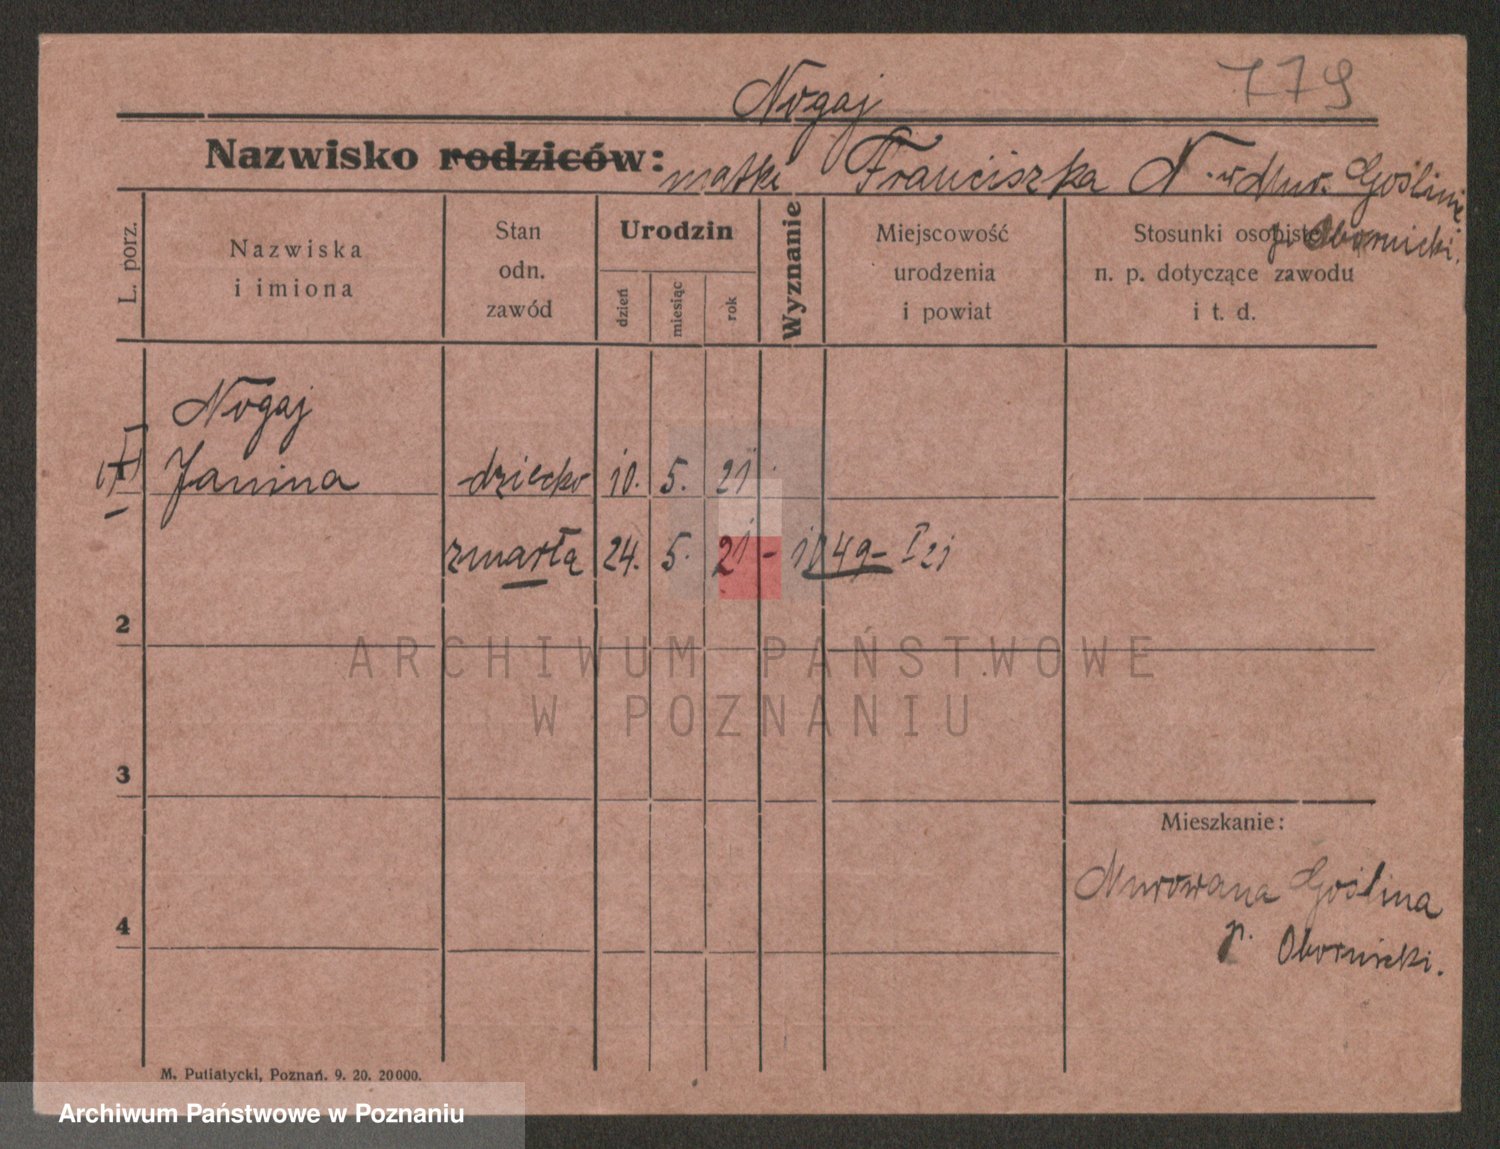 779
Nogaj
Nazwisko rodziców: matki Franciszka N. w Mur. Goślinie
p. Obornicki.
L. porz.
Nazwiska
i imiona
Stan
odn.
zawód
Urodzin
dzień
miesiąc
rok
Wyznanie
Miejscowość
urodzenia
i powiat
Stosunki osobiste
n. p. dotyczące zawodu
i t. d.
Nogaj
Janina dziecko 10. 5. 21
zmarła 24. 5. 21 - 1049 - I 21
2
3
4
Mieszkanie:
Murowana Goślina
p. Obornicki.
M. Putiatycki, Poznań. 9. 20. 20000.
ARCHIWUM PAŃSTWOWE
W POZNANIU
Archiwum Państwowe w Poznaniu